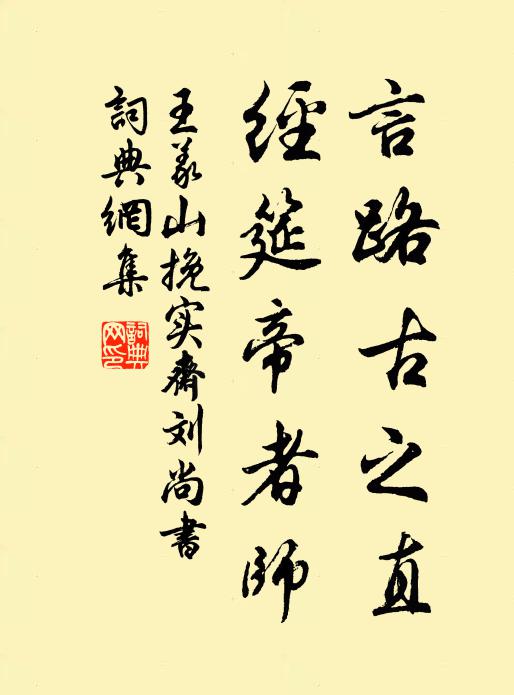 言路古之直
經筵帝者師
王义山挽实斋刘尚書
詞典網集
詞典網印